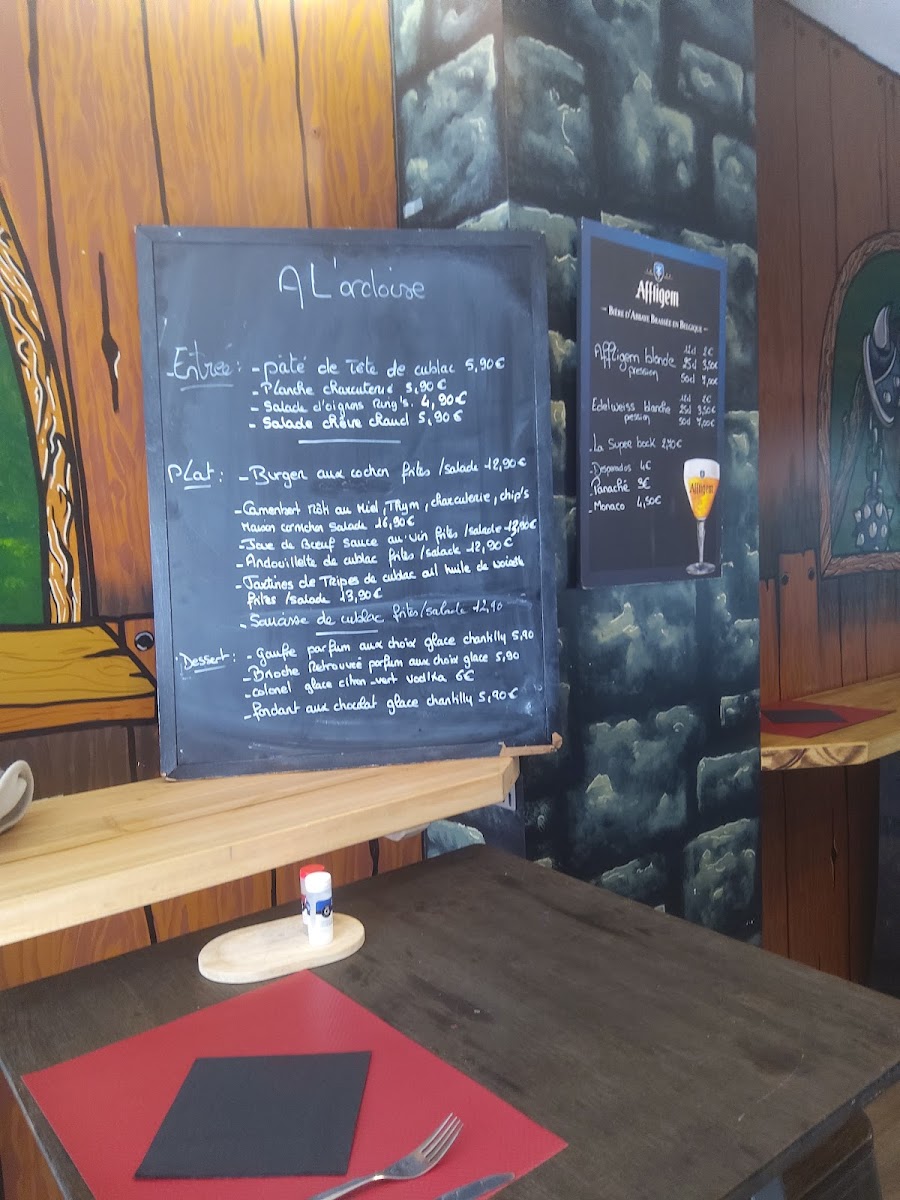 A L'ardoise
Entreé : - pâté de Tête de cublac 5,90€
- Planche charcuterie 5,90€
- Salade d'oignons Ring's. 4,90€
- Salade chêve chaud 5,90€
Plat : - Burger aux cochon frites /salade 12,90€
- Camembert Rôti au Miel, Thym, charcuterie, chip's
Maison cornichon Salade 16,90€
- Joue de Bœuf Sauce au vin frites /salade 12,90€
- Andouillette de cublac frites /salade 12,90€
- Tartines de Tripes de cublac ail huile de
frites /salade 13,90€
- Saucisse de cublac frites /salade 12,90
Dessert : - Gaufre parfum aux choix glace chantilly 5,90
- Brioche Retrouveé parfum aux choix glace 5,90
- colonel glace citron-vert vodka 6€
- fondant aux chocolat glace chantilly 5,90€
Affligem
BIÈRE D'ABBAYE BRASSÉE EN BELGIQUE
Affligem blonde 12cl 2€
pression 25cl 3,50€
50cl 7,00€
Edelweiss blanche 12cl 2€
pression 25cl 3,50€
50cl 7,00€
- La Super bock 2,90€
- Desperados 4€
- Panaché 3€
- Monaco 4,50€
Affligem